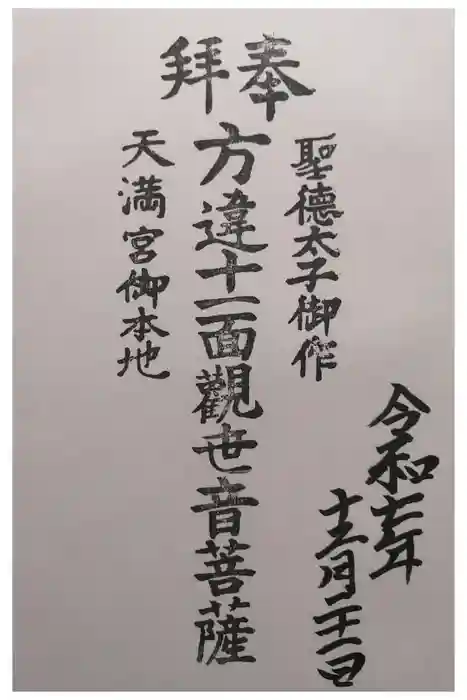 奉拝
令和七年
十二月二十一日
聖德太子御作
方違十一面觀世音菩薩
天満宮御本地